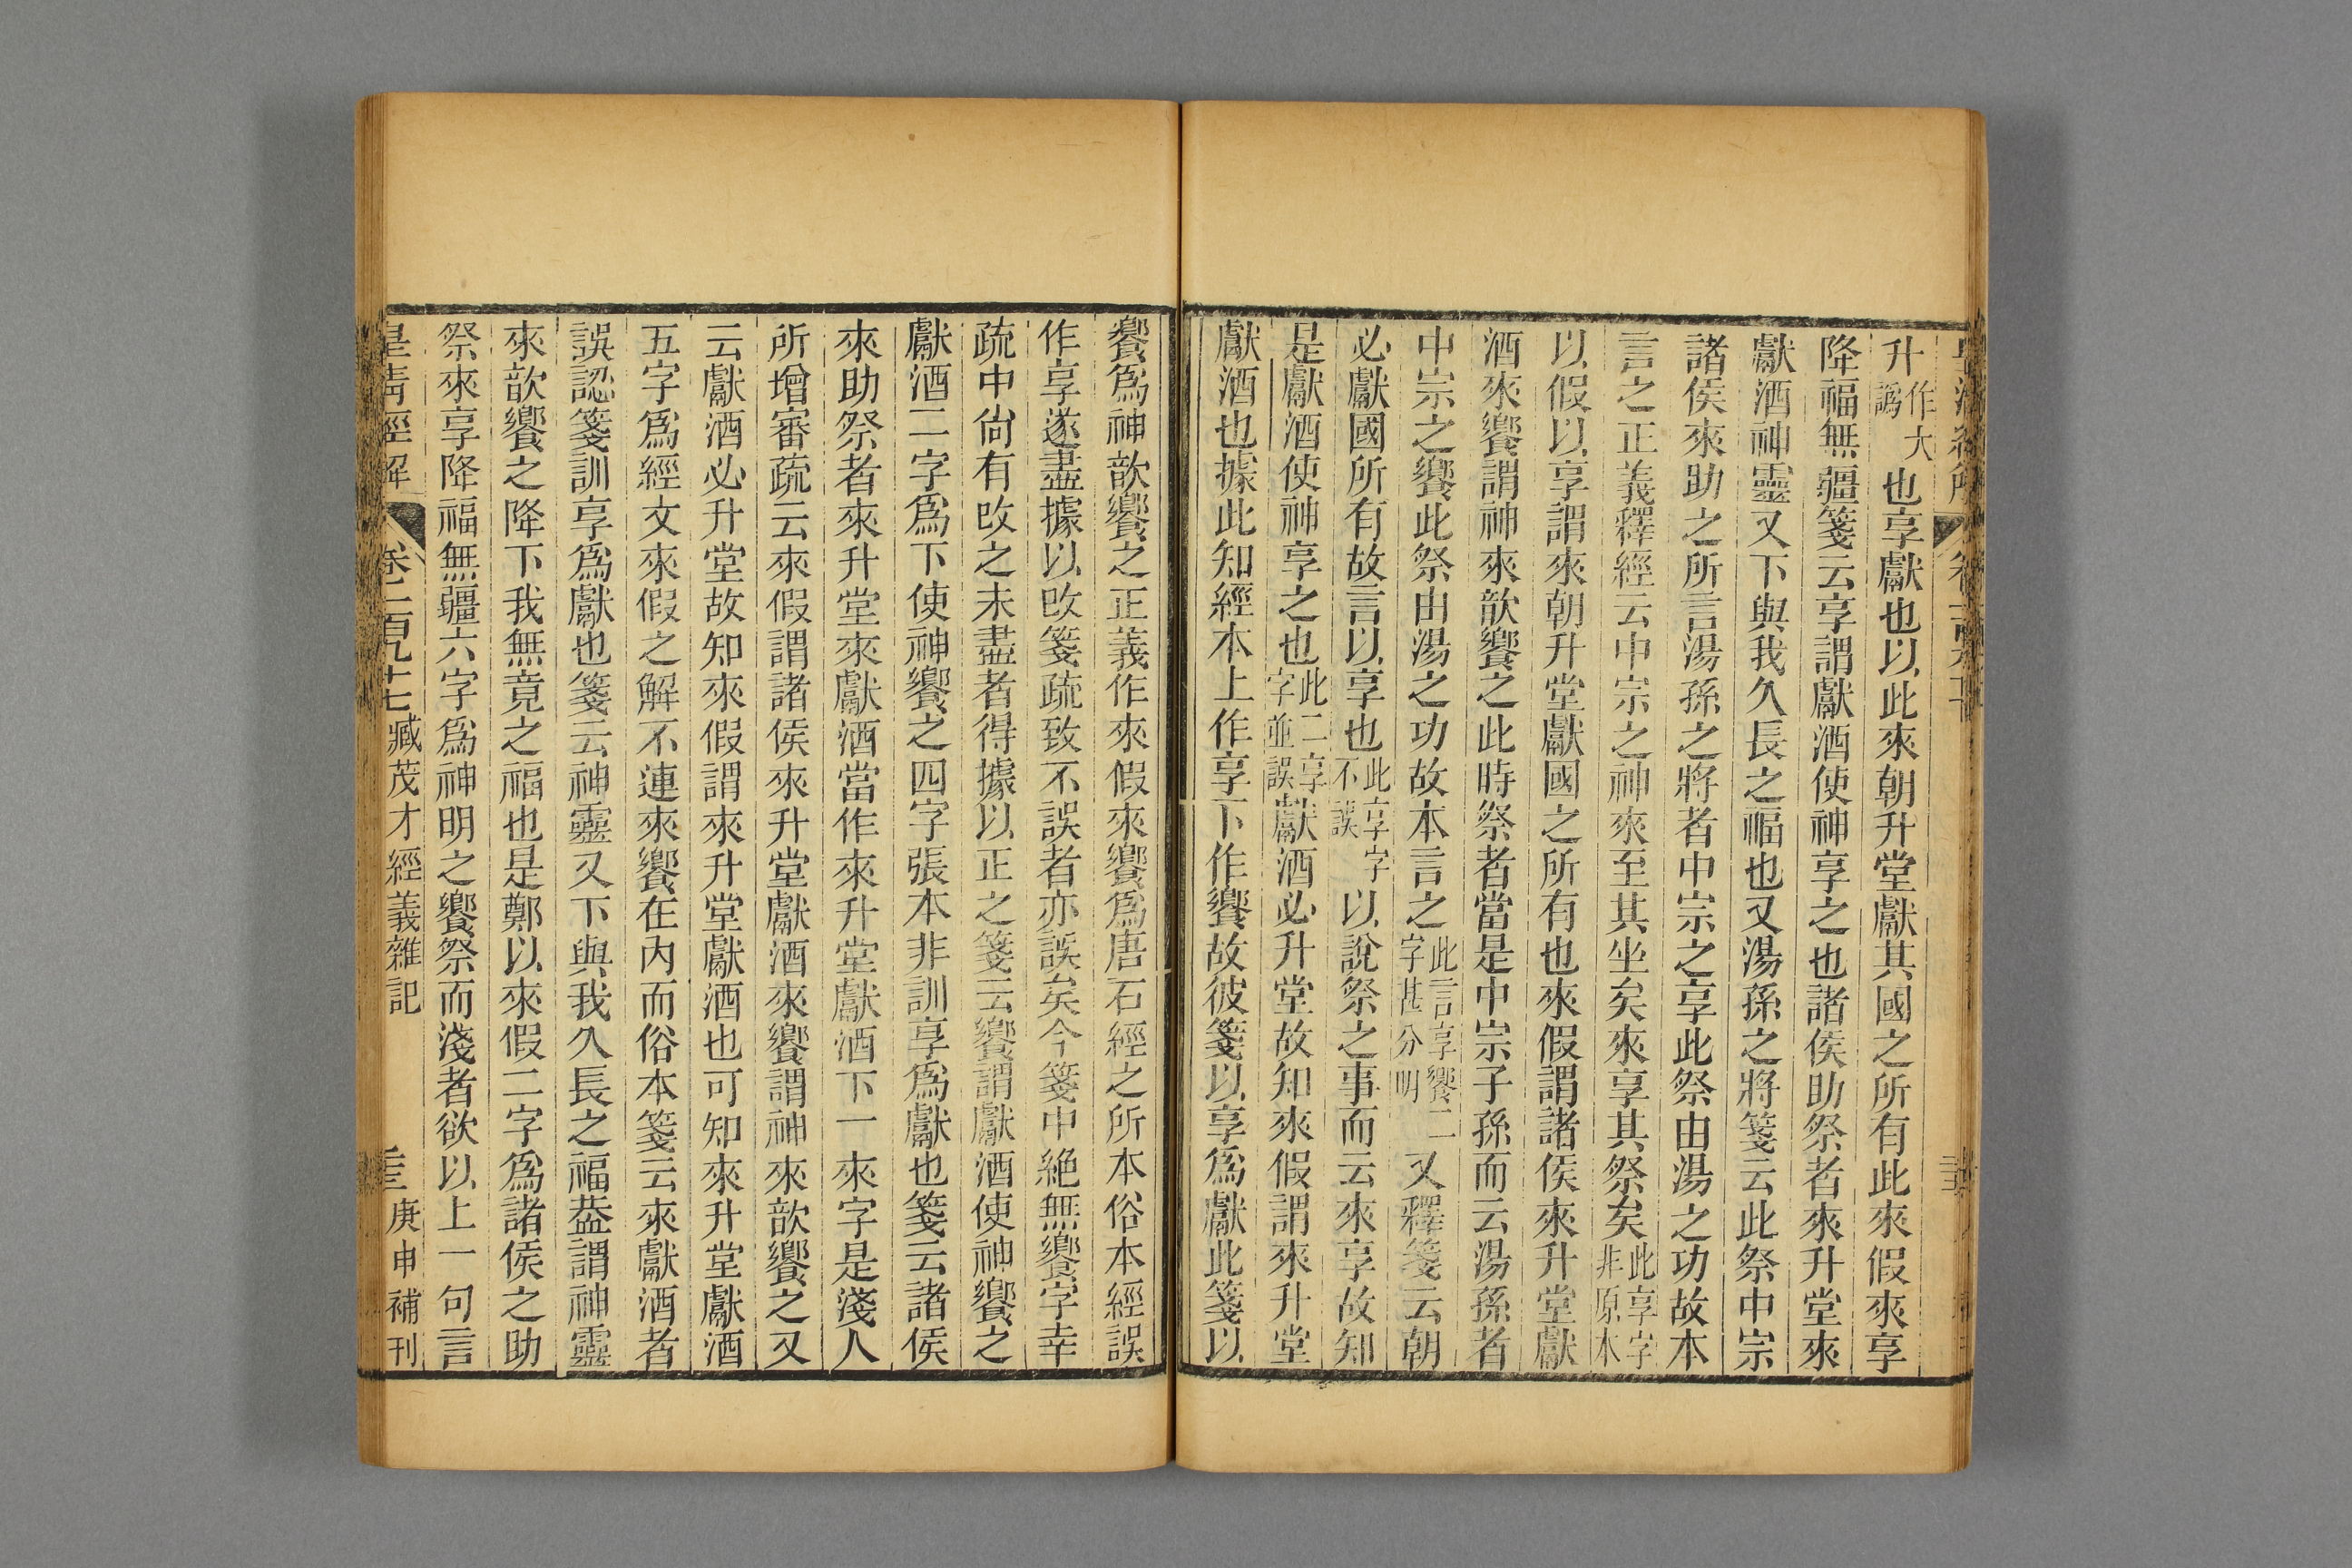 升作大譌也享獻也以此來朝升堂獻其國之所有此來假來享
降福無疆箋云享謂獻酒使神享之也諸侯助祭者來升堂來
獻酒神靈又下與我久長之福也又湯孫之將箋云此祭中宗
諸侯來助之所言湯孫之將者中宗之享此祭由湯之功故本
言之正義釋經云中宗之神來至其坐矣來享其祭矣此享字非原本
以假以享謂來朝升堂獻國之所有也來假謂諸侯來升堂獻
酒來饗謂神來歆饗之此時祭者當是中宗子孫而云湯孫者
中宗之饗此祭由湯之功故本言之此言享饗二字甚分明又釋箋云朝
必獻國所有故言以享也此享字不誤以說祭之事而云來享故知
是獻酒使神享之也此二享字並誤獻酒必升堂故知來假謂來升堂
獻酒也據此知經本上作享下作饗故彼箋以享爲獻此箋以
饗爲神歆饗之正義作來假來饗爲唐石經之所本俗本經誤
作享遂盡據以改箋疏致不誤者亦誤矣今箋中絶無饗字幸
疏中尙有改之未盡者得據以正之箋云饗謂獻酒使神饗之
獻酒二字爲下使神饗之四字張本非訓享爲獻也箋云諸侯
來助祭者來升堂來獻酒當作來升堂獻酒下一來字是淺人
所增審疏云來假謂諸侯來升堂獻酒來饗謂神來歆饗之又
云獻酒必升堂故知來假謂來升堂獻酒也可知來升堂獻酒
五字爲經文來假之解不連來饗在內而俗本箋云來獻酒者
誤認箋訓享爲獻也箋云神靈又下與我久長之福葢謂神靈
來歆饗之降下我無竟之福也是鄭以來假二字爲諸侯之助
祭來享降福無疆六字爲神明之饗祭而淺者欲以上一句言
皇淸經解 卷二百九十七 臧茂才經義雜記 庚申補刊